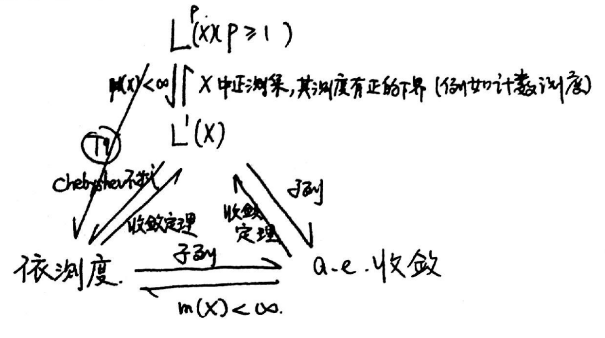 L^p(X)(p≥1)
m(X)<∞ X中正测集,其测度有正的下界(例如计数测度)
L^1(X)
Chebyshev不等式
子列
收敛定理
收敛定理
依测度.
子列
a.e.收敛
m(X)<∞.